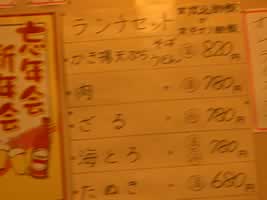 忘年会
新年会
ランチセット
かき揚天ぷら そば うどん 820円
肉 〃 780円
ざる 〃 780円
海とろ 〃 780円
たぬき 〃 680円